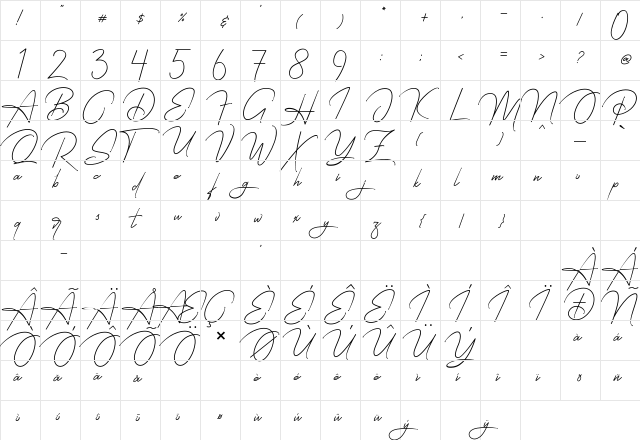 ! " # $ % & ' ( ) * + , - . / 0
1 2 3 4 5 6 7 8 9 : ; < = > ? @
A B C D E F G H I J K L M N O P
Q R S T U V W X Y Z [ ] ^ _ `
a b c d e f g h i j k l m n o p
q r s t u v w x y z { | }
À Á
Â Ã Ä Å Æ Ç È É Ê Ë Ì Í Î Ï Ð Ñ
Ò Ó Ô Õ Ö × Ø Ù Ú Û Ü Ý à á
â ã ä å è é ê ë ì í î ï ð ñ
ò ó ô õ ö ø ù ú û ü ý ÿ